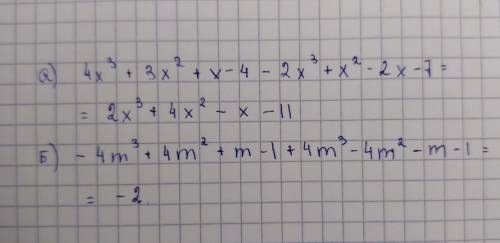 а) 4x³ + 3x² + x - 4 - 2x³ + x² - 2x - 7 =
= 2x³ + 4x² - x - 11
Б) - 4m³ + 4m² + m - 1 + 4m³ - 4m² - m - 1 =
= - 2.